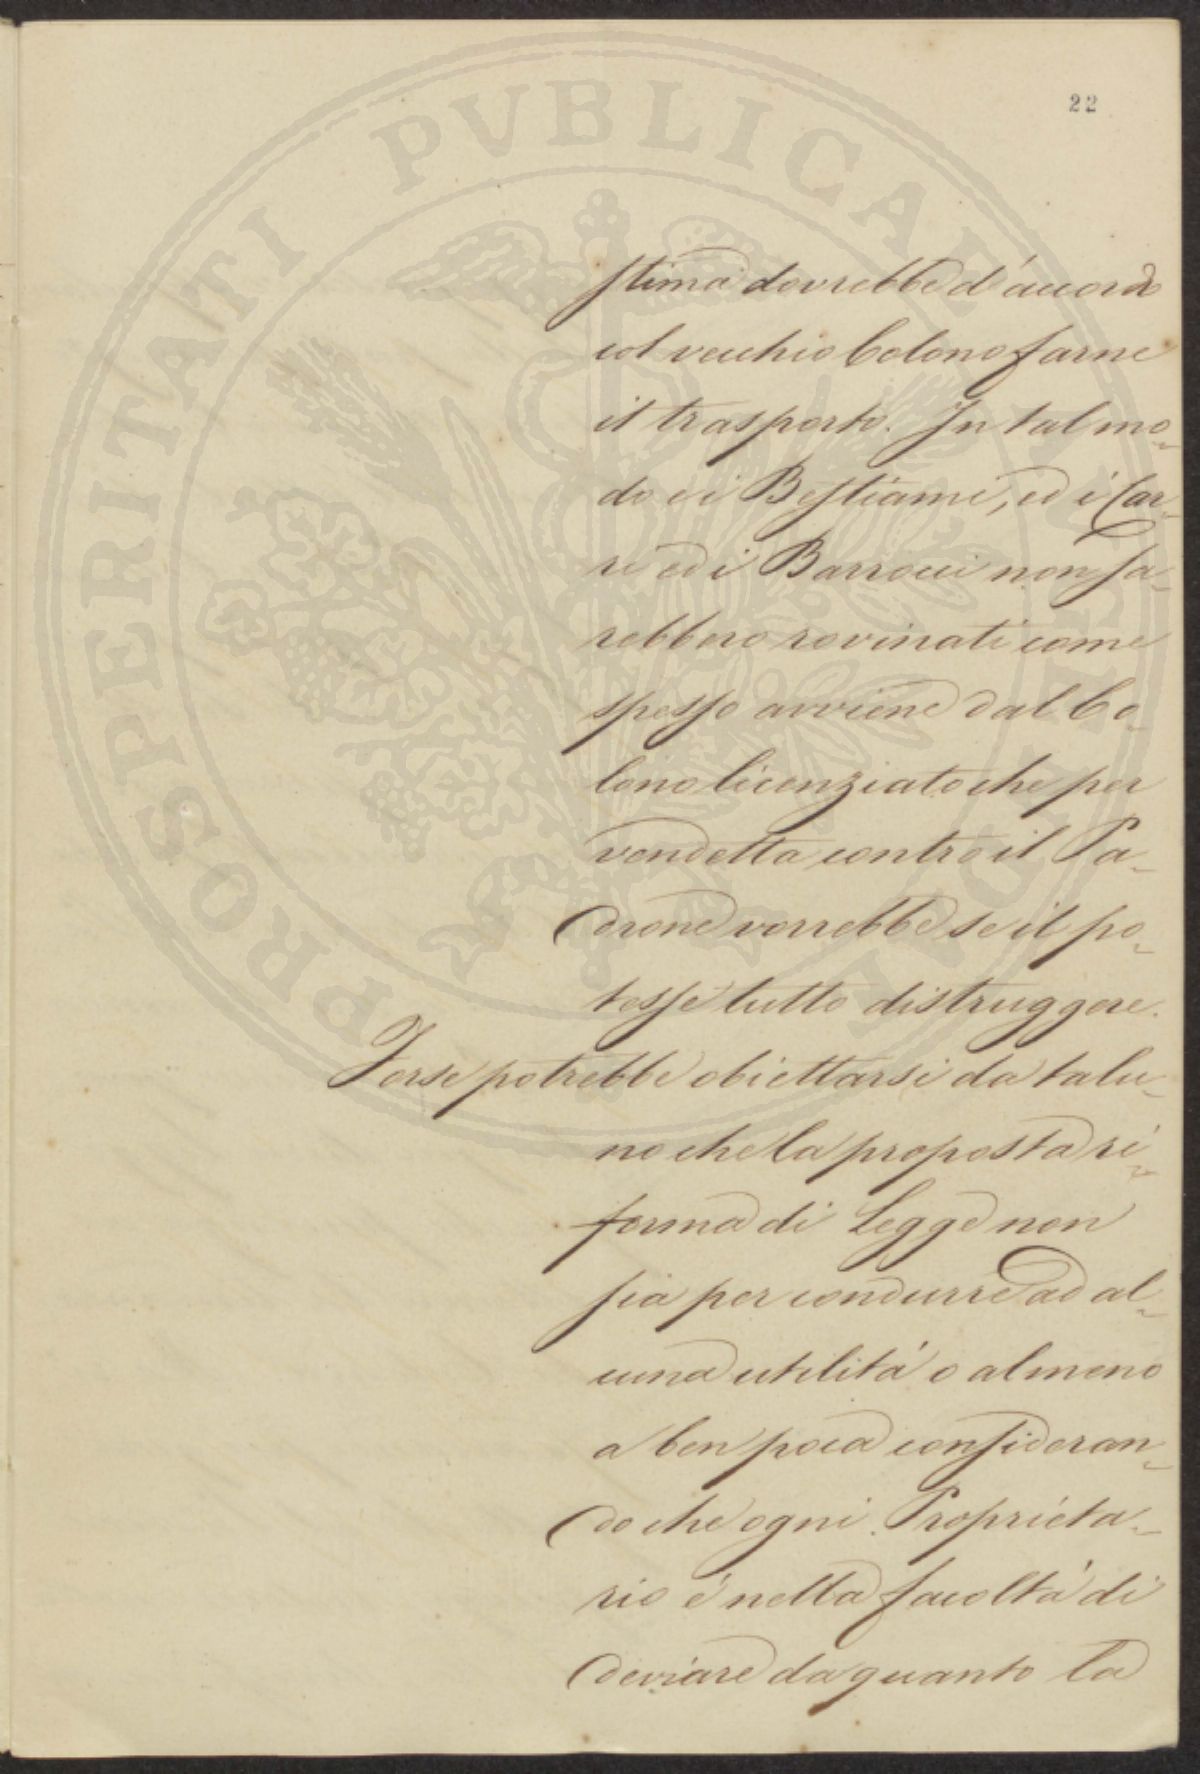 22
PROSPERITATI PVBLICAE AVGENDAE
stima dovrebbe d'accordo
col vecchio Colono farne
il trasporto. In tal mo-
do ei Bestiami, ed i Car-
ri ed i Barrocci non sa-
rebbero rovinati come
spesso avviene dal Co-
lono licenziato che per
vendetta contro il Pa-
drone vorrebbe se il po-
tesse tutto distruggere.
Forse potrebbe obiettarsi da talu-
no che la proposta ri-
forma di Legge non
sia per condurre ad al-
cuna utilità o almeno
a ben poca consideran-
do che ogni Proprieta-
rio è nella facoltà di
deviare da quanto la